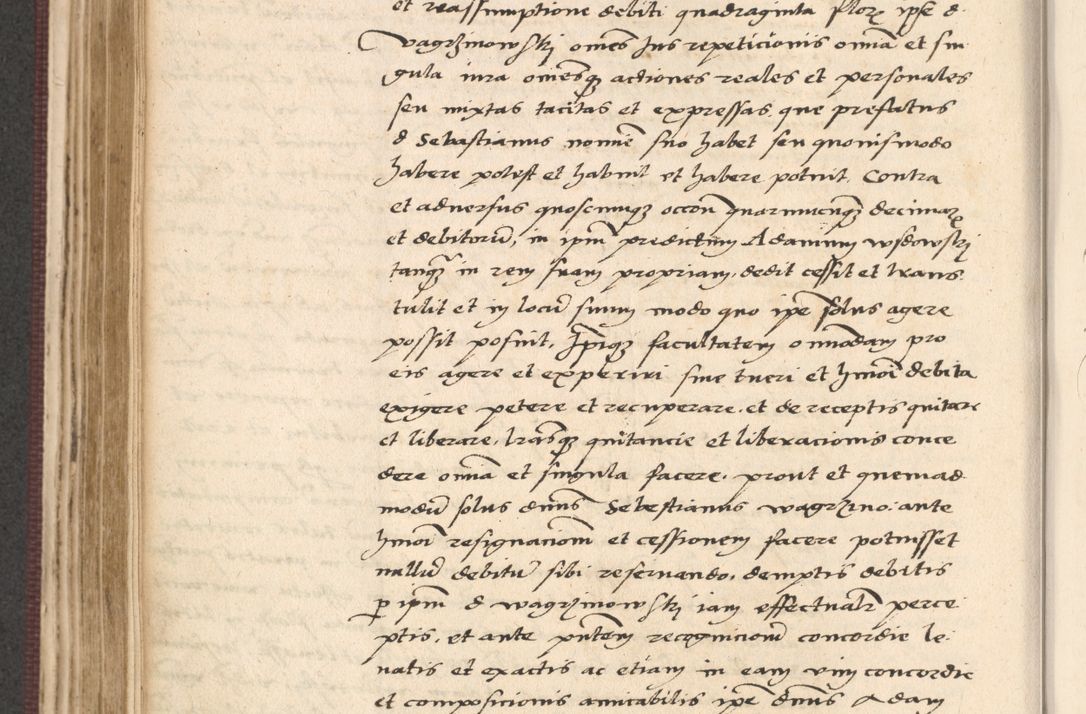 et reassumptione debiti quadraginta flor ipse d
vagrzinowskj omēs Jus repeticionis omīa et sin
gula iura omēsq actiones reales et personales
seu mixtas tacitas et expressas que prefatus
d Sebastianus nomīe suo habet seu quouismodo
habere potest et habuit et habere potuit. Contra
et aduersus quoscunq occōn quarumcunq decimaꝝ
et debitorū, in ipm predictum Adamum wsdowskj
tanq in rem suam propriam, dedit cessit et trans
tulit et in locū suum modo quo ipe solus agere
possit posuit, Ipiq facultatem omodam pro
eis agere et experiri siue tueri et hmōi debita
exigere petere et recuperare, et de receptis quitare
et liberare, lrasq quitancie et liberacionis conce
dere omīa et singula facere, prout et quemad
modū solus dnus Sebastianus wagrzino: ante
hmōi resignacionē et cessionem facere potuisset
nullū debitū sibi reseruando, demptis debitis
ꝑ ipm d wagrzinowskj iam effectualr perce
ptis, et ante pntem recognicionē concordie le
uatis et exactis ac etiam in eam vim concordie
et composicionis amicabilis ipe dnus Adam